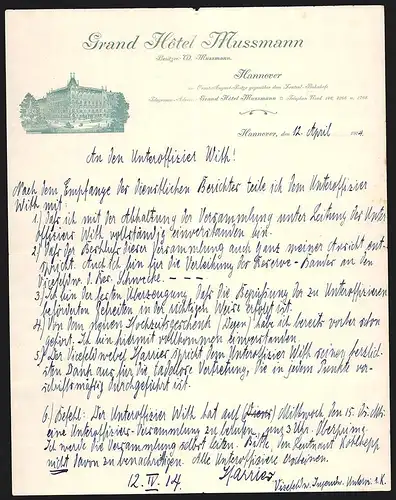 Grand Hôtel Mussmann
Besitzer: W. Mussmann.
Hannover
Ernst-August-Platz gegenüber dem Central-Bahnhof.
Telegramm-Adresse: Grand Hôtel Mussmann
Hannover, den 12 April 1914
An den Unteroffizier With!
Nach dem Empfange der Dienstlichen Berichtes teile ich dem Unteroffizier
With mit:
1.) Daß ich mit der Abhaltung der Versammlung unter Leitung des Unter
offiziers With vollständig einverstanden bin.
2.) Daß der Beschluß dieser Versammlung auch ganz meiner Ansicht ent-
spricht. Auch ich bin für die Verleihung der Reserve-Bänder an den
Vizefeldw. d. Res.
3.) Ich bin der festen Überzeugung, daß die Begrüßung der zu Unteroffizieren
beförderten Gefreiten in der richtigen Weise erfolgt ist.
4.) Von dem neuen Hochzeitsgeschenk (Degen) habe ich bereits vorher schon
gehört. Ich bin hiermit vollkommen einverstanden.
5.) Der Vizefeldwebel spricht dem Unteroffizier With seinen herzlich-
sten Dank aus für die tadellose Vertretung, die in jedem Punkte vor-
schriftsmäßig durchgeführt ist.
6.) Befehl: Der Unteroffizier With hat auf Mittwoch den 15. d. Mts.
eine Unteroffizier-Versammlung zu berufen, um 3 Uhr
Ich werde die Versammlung selbst leiten. Bitte den Leutnant
nicht davon zu benachrichtigen. Alle Unteroffiziere
12. IV. 14.
Vizefeldw.